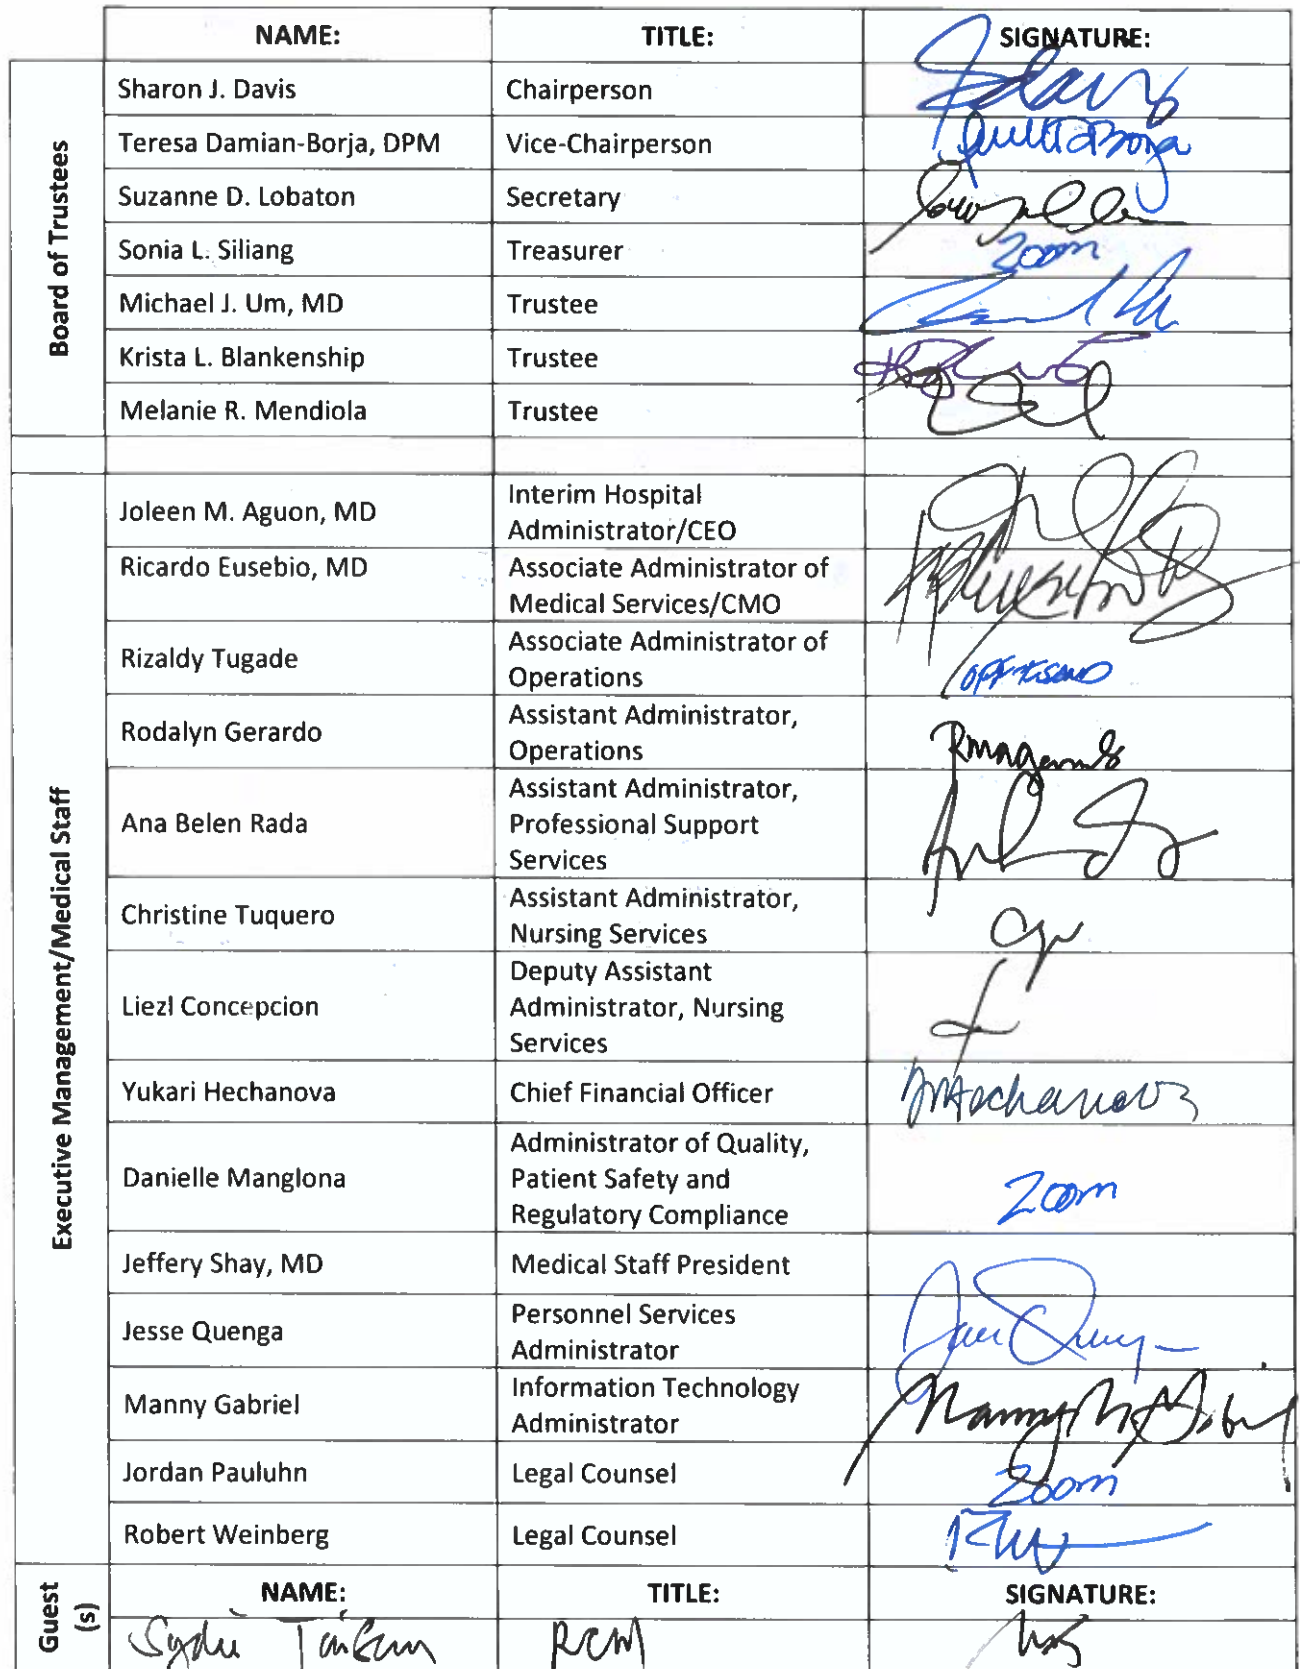 NAME: TITLE: SIGNATURE:
Board of Trustees
Sharon J. Davis Chairperson
Teresa Damian-Borja, DPM Vice-Chairperson
Suzanne D. Lobaton Secretary
Sonia L. Siliang Treasurer Zoom
Michael J. Um, MD Trustee
Krista L. Blankenship Trustee
Melanie R. Mendiola Trustee
Executive Management/Medical Staff
Joleen M. Aguon, MD Interim Hospital
Administrator/CEO
Ricardo Eusebio, MD Associate Administrator of
Medical Services/CMO
Rizaldy Tugade Associate Administrator of
Operations
Rodalyn Gerardo Assistant Administrator,
Operations
Ana Belen Rada Assistant Administrator,
Professional Support
Services
Christine Tuquero Assistant Administrator,
Nursing Services
Liezl Concepcion Deputy Assistant
Administrator, Nursing
Services
Yukari Hechanova Chief Financial Officer
Danielle Manglona Administrator of Quality,
Patient Safety and
Regulatory Compliance Zoom
Jeffery Shay, MD Medical Staff President
Jesse Quenga Personnel Services
Administrator
Manny Gabriel Information Technology
Administrator
Jordan Pauluhn Legal Counsel Zoom
Robert Weinberg Legal Counsel
Guest
(s)
NAME: TITLE: SIGNATURE:
RCM